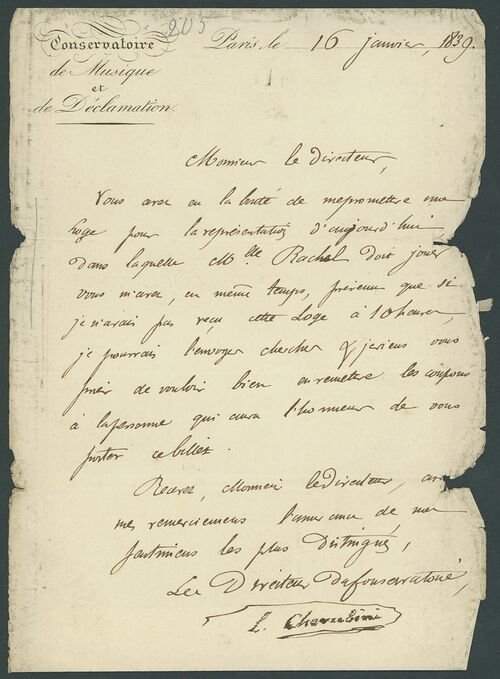 205
Conservatoire
de Musique
et
de Déclamation.
Paris, le 16 janvier, 1839.
Monsieur le Directeur,
Vous avez eu la bonté de me promettre une
Loge pour la représentation d'aujourd'hui
dans laquelle Mlle Rachel doit jouer
vous m'avez, en même temps, prévenu que si
je n'avais pas reçu cette Loge à 10 heures,
je pourrais l'envoyer chercher & je viens vous
prier de vouloir bien en remettre les coupons
à la personne qui aura l'honneur de vous
porter ce billet.
Recevez, Monsieur le Directeur, avec
mes remerciemens l'assurance de mes
sentimens les plus distingués,
Le Directeur du Conservatoire,
L. Cherubini